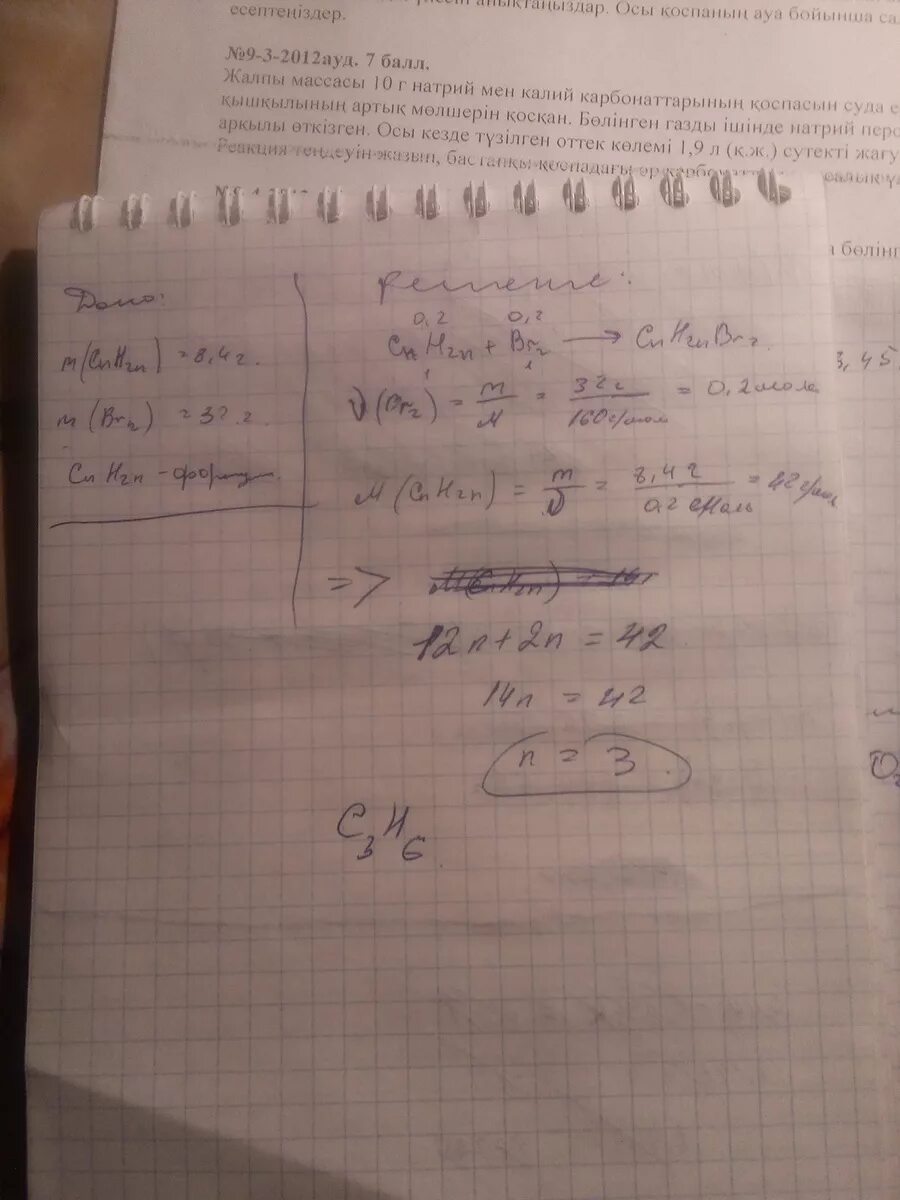 есептеңіздер.
анықтаңыздар. Осы қоспаның ауа бойынша са
№9-3-2012ауд. 7 балл.
Жалпы массасы 10 г натрий мен калий карбонаттарының қоспасын суда е
қышқылының артық мөлшерін қосқан. Бөлінген газды ішінде натрий перо
арқылы өткізген. Осы кезде түзілген оттек көлемі 1,9 л (қ.ж.) сутекті жағу
Реакция теңдеуін жазып, бастапқы қоспадағы әр карбонатт
а бөлінг
3,45
Дано:
m(CnH2n) = 8,4 г.
m(Br2) = 32 г.
CnH2n - формул
Решение:
0,2 0,2
CnH2n + Br2 → CnH2nBr2
1 1
ν(Br2) = m/M = 32 г/160 г/моль = 0,2 моль
M(CnH2n) = m/ν = 8,4 г/0,2 моль = 42 г/моль
=>
12n + 2n = 42
14n = 42
n = 3
C3H6